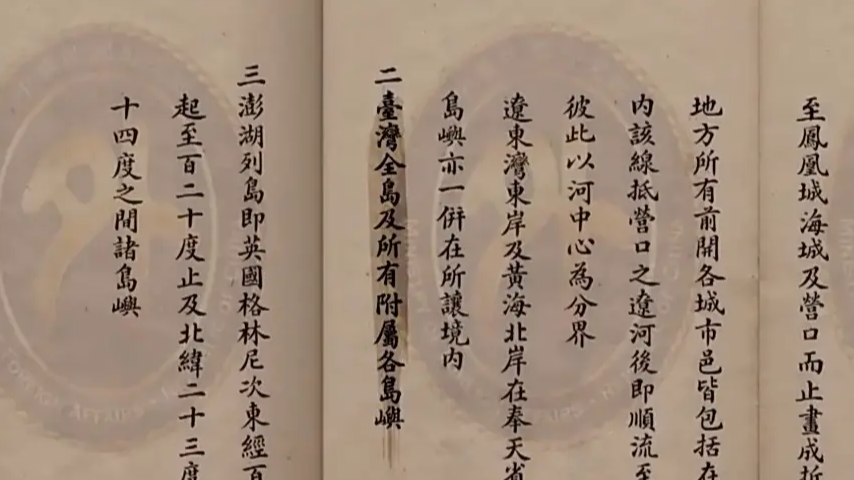 至鳳凰城海城及營口而止畫成折
地方所有前開各城市邑皆包括在
內該線抵營口之遼河後即順流至
彼此以河中心為分界
遼東灣東岸及黃海北岸在奉天省
島嶼亦一併在所讓境內
二臺灣全島及所有附屬各島嶼
三澎湖列島即英國格林尼次東經百
起至百二十度止及北緯二十三度
十四度之間諸島嶼
FOREIGN AFFAIRS